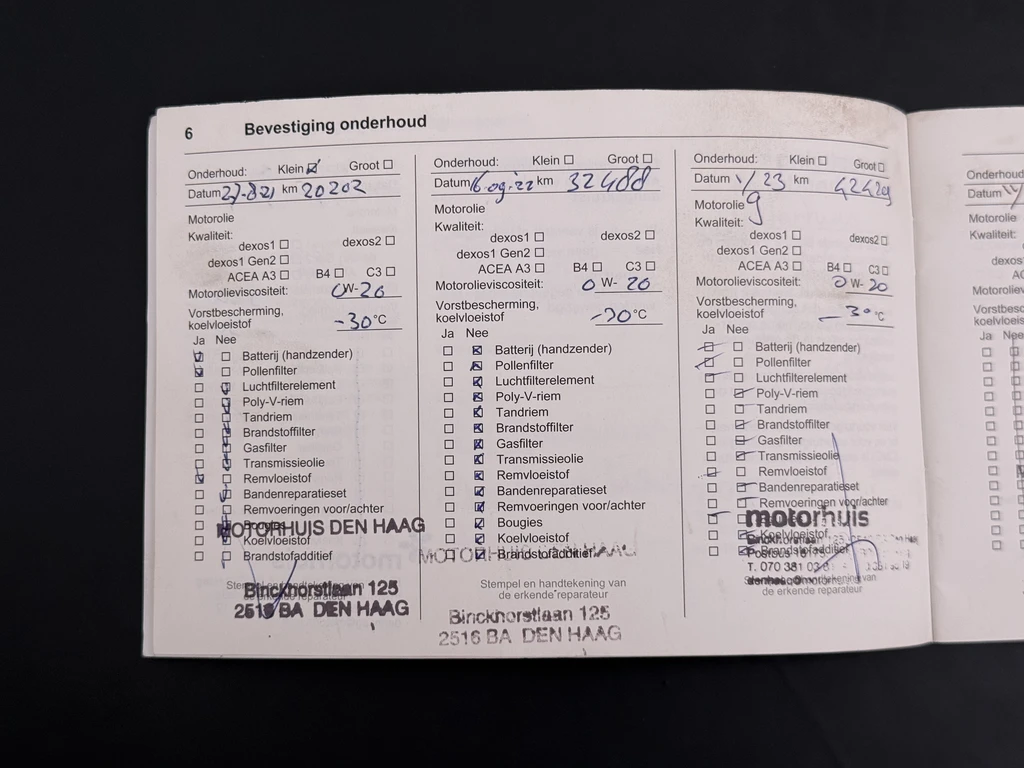 6 Bevestiging onderhoud
Onderhoud: Klein Groot
Datum 27-8-21 km 20202
Motorolie
Kwaliteit:
dexos1 dexos2
dexos1 Gen2
ACEA A3 B4 C3
Motorolieviscositeit: 0W-20
Vorstbescherming,
koelvloeistof -30 °C
Ja Nee
Batterij (handzender)
Pollenfilter
Luchtfilterelement
Poly-V-riem
Tandriem
Brandstoffilter
Gasfilter
Transmissieolie
Remvloeistof
Bandenreparatieset
Remvoeringen voor/achter
Bougies
MOTORHUIS DEN HAAG
Koelvloeistof
Brandstofadditief
Stempel en handtekening van
de erkende reparateur
Binckhorstlaan 125
2516 BA DEN HAAG
Onderhoud: Klein Groot
Datum 16-09-22 km 32488
Motorolie
Kwaliteit:
dexos1 dexos2
dexos1 Gen2
ACEA A3 B4 C3
Motorolieviscositeit: 0W-20
Vorstbescherming,
koelvloeistof °C
Ja Nee
Batterij (handzender)
Pollenfilter
Luchtfilterelement
Poly-V-riem
Tandriem
Brandstoffilter
Gasfilter
Transmissieolie
Remvloeistof
Bandenreparatieset
Remvoeringen voor/achter
Bougies
Koelvloeistof
MOTORHUIS DEN HAAG
Brandstofadditief
Stempel en handtekening van
de erkende reparateur
Binckhorstlaan 125
2516 BA DEN HAAG
Onderhoud: Klein Groot
Datum /23 km 42429
Motorolie 9
Kwaliteit:
dexos1 dexos2
dexos1 Gen2
ACEA A3 B4 C3
Motorolieviscositeit: 0W-20
Vorstbescherming,
koelvloeistof -30 °C
Ja Nee
Batterij (handzender)
Pollenfilter
Luchtfilterelement
Poly-V-riem
Tandriem
Brandstoffilter
Gasfilter
Transmissieolie
Remvloeistof
Bandenreparatieset
Remvoeringen voor/achter
motorhuis
Koelvloeistof
Binckhorstlaan 125
Brandstofadditief
T. 070 381
handtekening van
de erkende reparateur
Onderhoud
Datum
Motorolie
Kwaliteit:
dexos
ACEA
Motoroliev
Vorstbesc
koelvloeis
Ja Nee